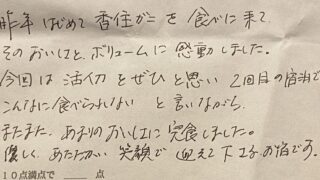 昨年 はじめて 香住ガニ を 食べに 来て
そのおいしさと、ボリュームに 感動しました。
今回は 活ガニ をぜひと思い 2回目の宿泊で
こんなに食べられない と言いながら
またまた、あまりのおいしさに 完食しました。
優しく、あたたかい 笑顔で 迎えて下さる の宿です。
10点満点で 点